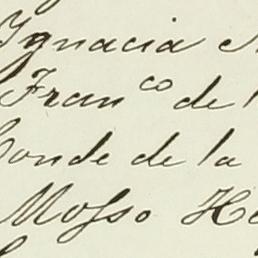 Ignacia
Fran.co de l
Conde de la
Mosso He